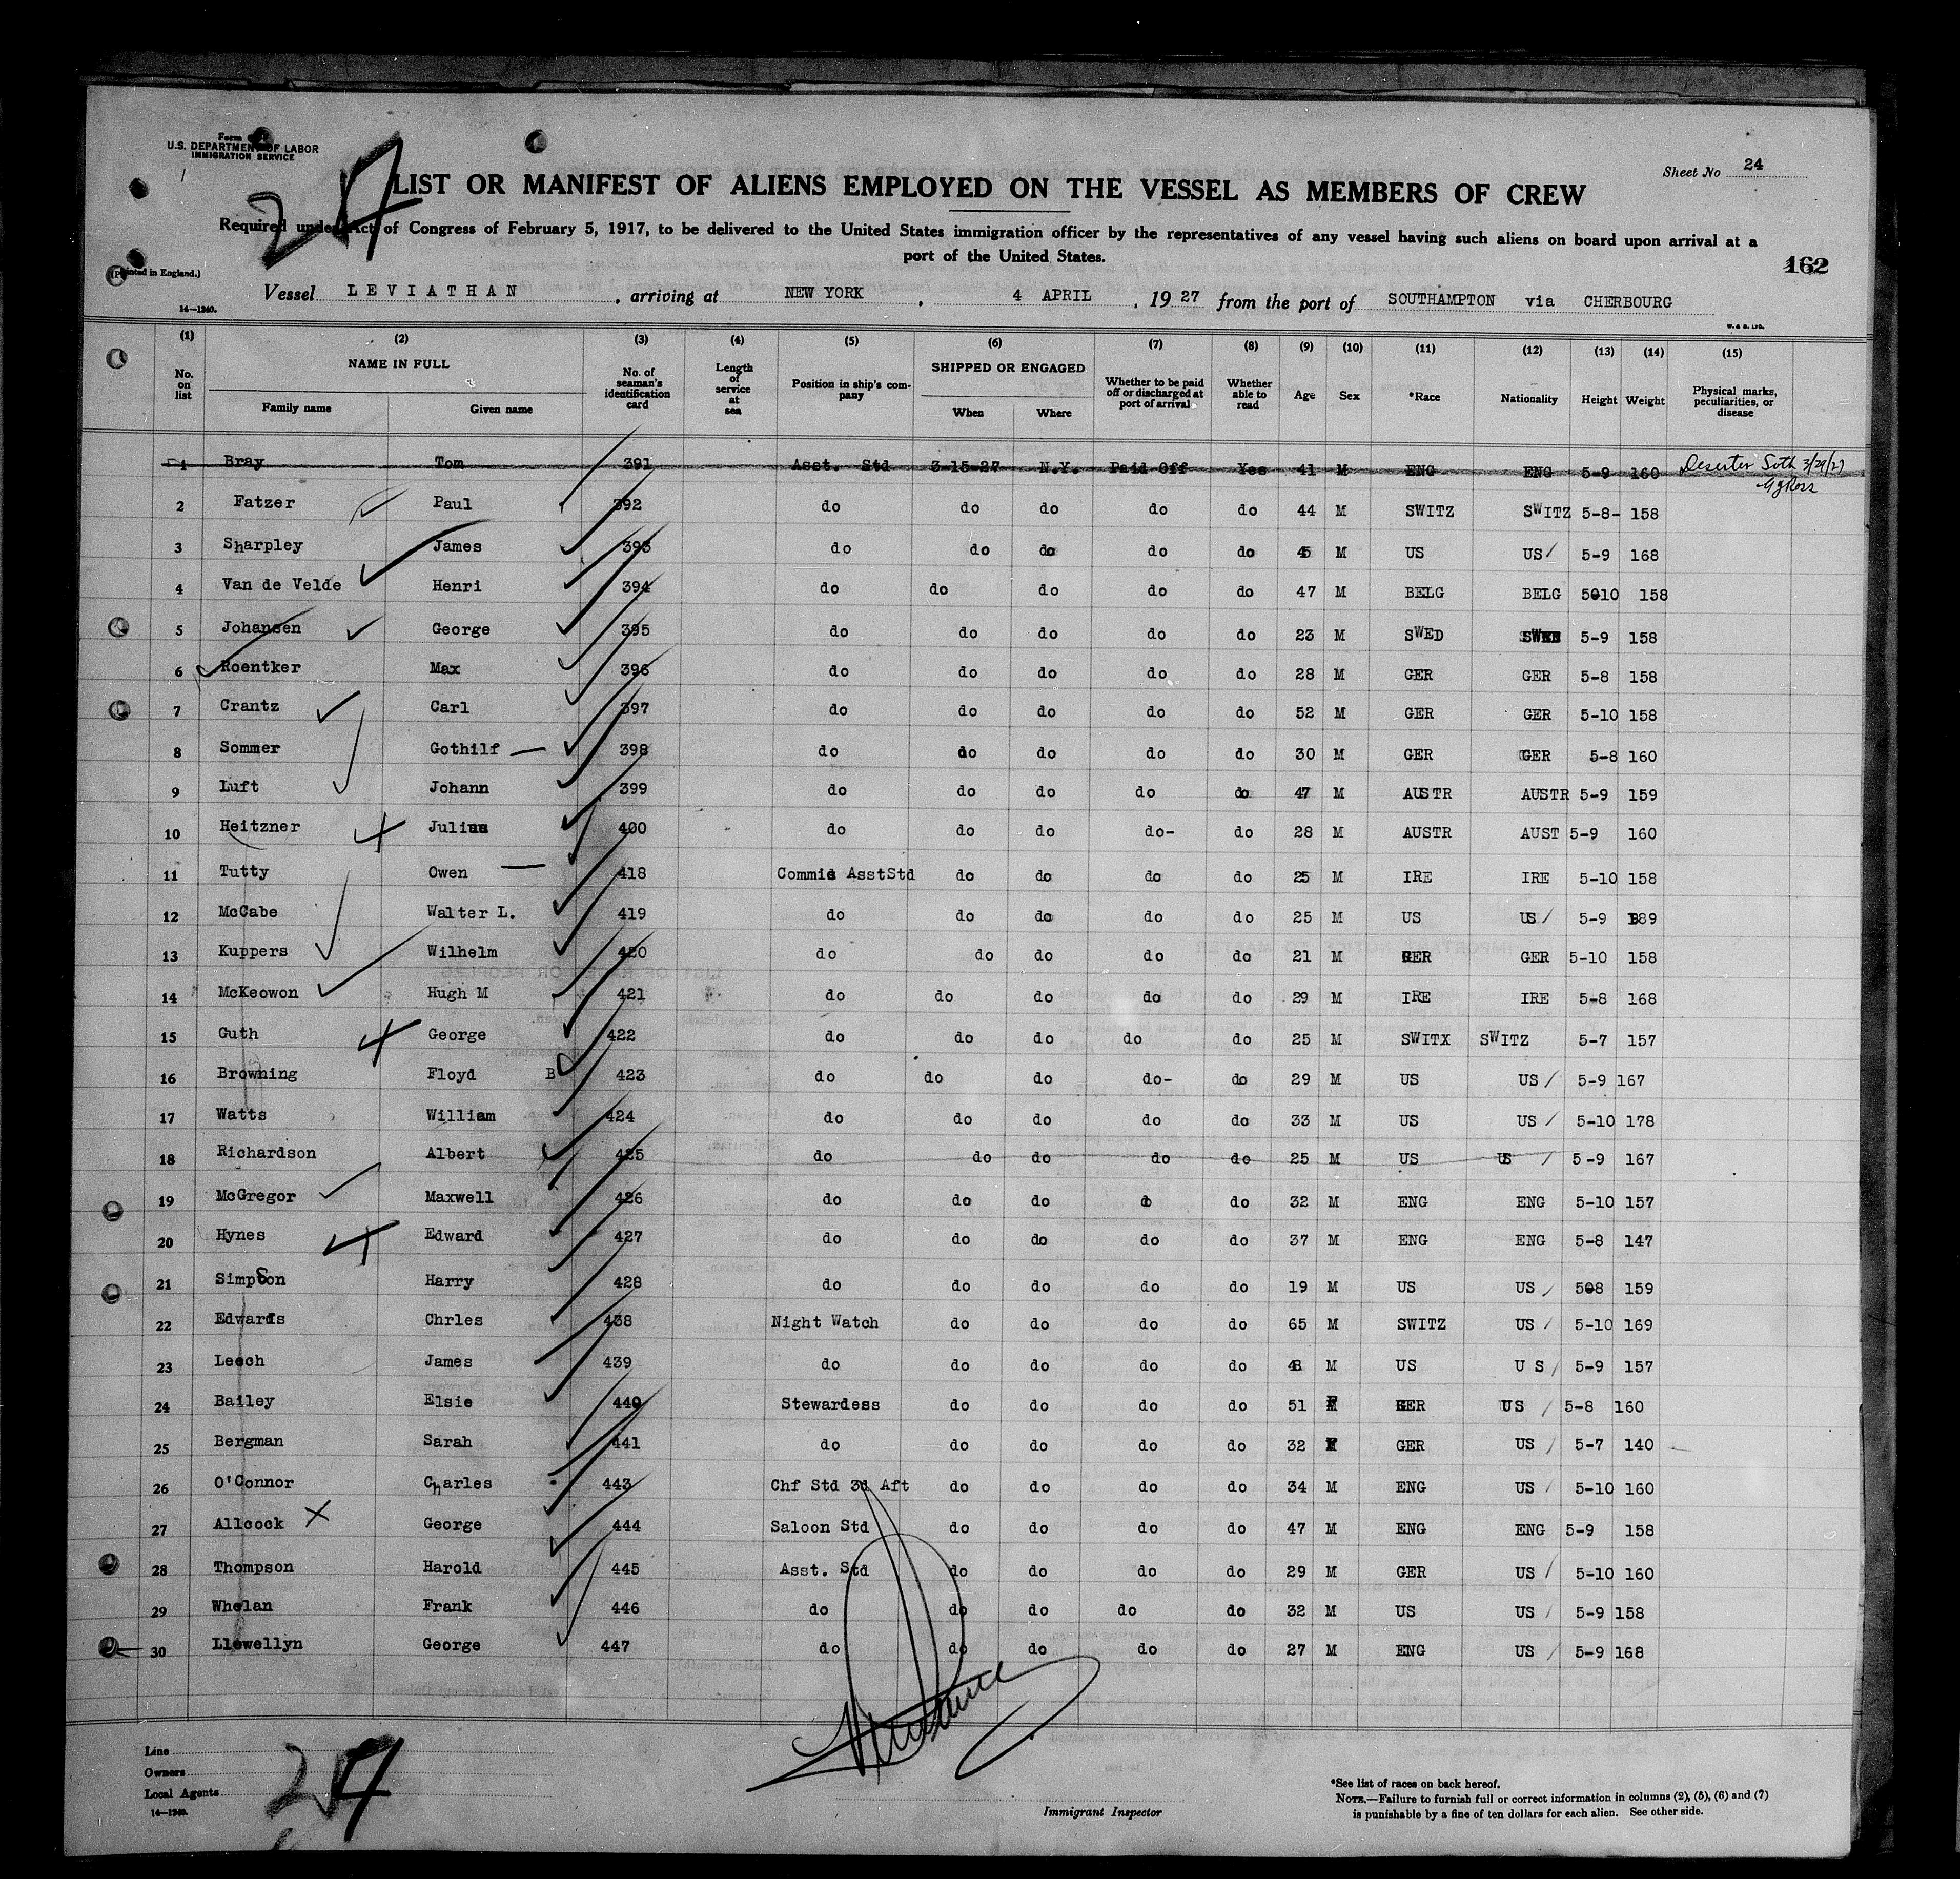 U.S. DEPARTMENT OF LABOR
IMMIGRATION SERVICE
24
Sheet No 24
LIST OR MANIFEST OF ALIENS EMPLOYED ON THE VESSEL AS MEMBERS OF CREW
Required under Act of Congress of February 5, 1917, to be delivered to the United States immigration officer by the representatives of any vessel having such aliens on board upon arrival at a
port of the United States.
162
(Printed in England.)
Vessel LEVIATHAN, arriving at NEW YORK, 4 APRIL, 1927 from the port of SOUTHAMPTON via CHERBOURG
14—1240.
W. & S. LTD.
(1) (2) (3) (4) (5) (6) (7) (8) (9) (10) (11) (12) (13) (14) (15)
No. on list NAME IN FULL Family name Given name No. of seaman's identification card Length of service at sea Position in ship's company SHIPPED OR ENGAGED When Where Whether to be paid off or discharged at port of arrival Whether able to read Age Sex *Race Nationality Height Weight Physical marks, peculiarities, or disease
1 Bray Tom 391 Asst. Std 3-15-27 N.Y. Paid Off Yes 41 M ENG ENG 5-9 160 Deserter Soth 3/29/27
2 Fatzer Paul 392 do do do do do 44 M SWITZ SWITZ 5-8- 158
3 Sharpley James 393 do do do do do 45 M US US 5-9 168
4 Van de Velde Henri 394 do do do do do 47 M BELG BELG 5010 158
5 Johansen George 395 do do do do do 23 M SWED 5-9 158
6 Roentker Max 396 do do do do do 28 M GER GER 5-8 158
7 Crantz Carl 397 do do do do do 52 M GER GER 5-10 158
8 Sommer Gothilf 398 do do do do do 30 M GER GER 5-8 160
9 Luft Johann 399 do do do do do 47 M AUSTR AUSTR 5-9 159
10 Heitzner Julius 400 do do do do- do 28 M AUSTR AUST 5-9 160
11 Tutty Owen 418 Commis AsstStd do do do do 25 M IRE IRE 5-10 158
12 McCabe Walter L. 419 do do do do do 25 M US US 5-9 189
13 Kuppers Wilhelm 420 do do do do do 21 M GER GER 5-10 158
14 McKeowon Hugh M 421 do do do do do 29 M IRE IRE 5-8 168
15 Guth George 422 do do do do do 25 M SWITX SWITZ 5-7 157
16 Browning Floyd B 423 do do do do- do 29 M US US 5-9 167
17 Watts William 424 do do do do do 33 M US US 5-10 178
18 Richardson Albert 425 do do do do do 25 M US US 5-9 167
19 McGregor Maxwell 426 do do do do do 32 M ENG ENG 5-10 157
20 Hynes Edward 427 do do do do do 37 M ENG ENG 5-8 147
21 Simpson Harry 428 do do do do do 19 M US US 508 159
22 Edwards Chrles 438 Night Watch do do do do 65 M SWITZ US 5-10 169
23 Leech James 439 do do do do do 48 M US U S 5-9 157
24 Bailey Elsie 440 Stewardess do do do do 51 F GER US 5-8 160
25 Bergman Sarah 441 do do do do do 32 F GER US 5-7 140
26 O'Connor Charles 443 Chf Std 3d Aft do do do do 34 M ENG US 5-10 160
27 Allcock George 444 Saloon Std do do do do 47 M ENG ENG 5-9 158
28 Thompson Harold 445 Asst. Std do do do do 29 M GER US 5-10 160
29 Whelan Frank 446 do do do do do 32 M US US 5-9 158
30 Llewellyn George 447 do do do do do 27 M ENG US 5-9 168
Line
Owners
Local Agents
14—1240.
24
Immigrant Inspector
*See list of races on back hereof.
NOTE.—Failure to furnish full or correct information in columns (2), (5), (6) and (7)
is punishable by a fine of ten dollars for each alien. See other side.